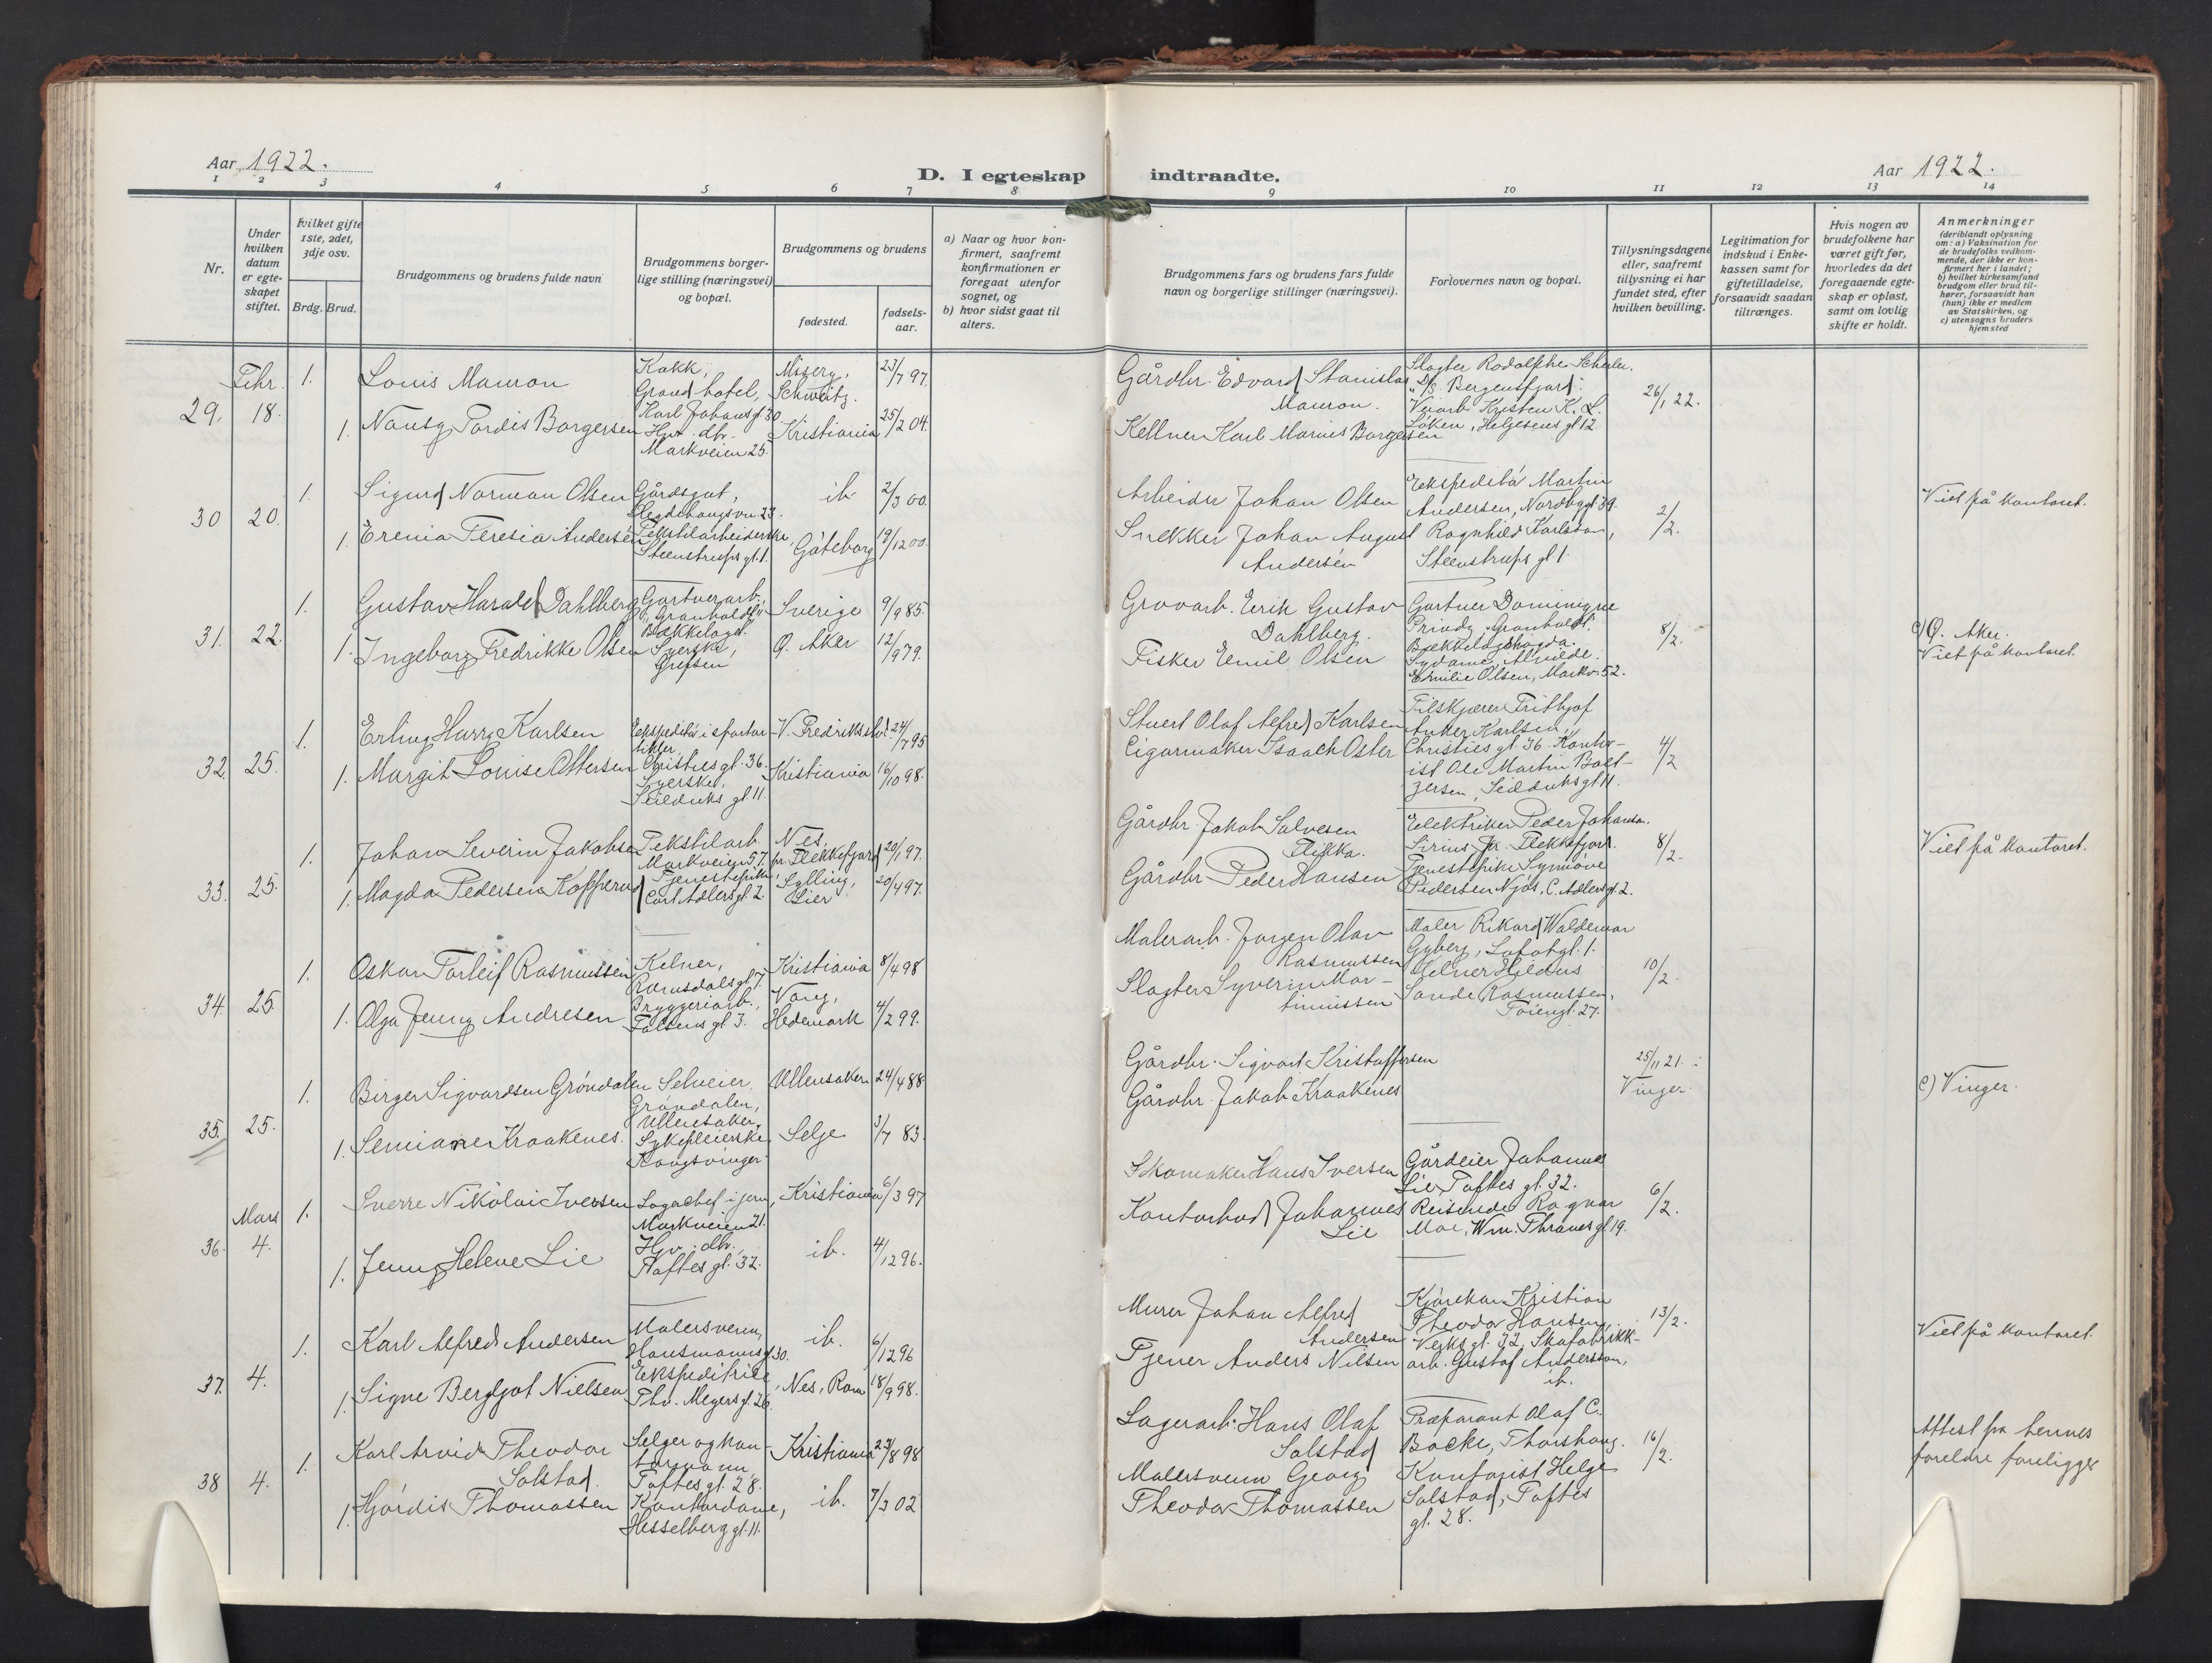 Aar 1922.
D. I egteskap indtraadte.
Aar 1922.
1 2 3 4 5 6 7 8 9 10 11 12 13 14
Nr.
Under hvilken datum er egteskapet stiftet.
Hvilket gifte 1ste, 2det, 3dje osv.
Brdg. Brud.
Brudgommens og brudens fulde navn
Brudgommens borgerlige stilling (næringsvei) og bopæl.
Brudgommens og brudens
fødested.
fødselsaar.
a) Naar og hvor konfirmert, saafremt konfirmationen er foregaat utenfor sognet, og
b) hvor sidst gaat til alters.
Brudgommens fars og brudens fars fulde navn og borgerlige stillinger (næringsvei).
Forlovernes navn og bopæl.
Tillysningsdagene eller, saafremt tillysning ei har fundet sted, efter hvilken bevilling.
Legitimation for indskud i Enkekassen samt for giftetilladelse, forsaavidt saadan tiltrænges.
Hvis nogen av brudefolkene har været gift før, hvorledes da det foregaaende egteskap er opløst, samt om lovlig skifte er holdt.
Anmerkninger
(deriblandt oplysning om: a) Vaksination for de brudefolks vedkommende, der ikke er konfirmert her i landet; b) hvilket kirkesamfund brudgom eller brud tilhører, forsaavidt han (hun) ikke er medlem av Statskirken, og c) utensogns bruders hjemsted
29. Febr. 18.
1. Louis Mauron
Kokk, Grand hotel, Karl Johansgt 30
Misery, Schweitz.
23/7 97.
Gårdbr. Edvard Stanislas Mauron.
Slagter Rodolphe Scherler, "D/S. Bergensfjord".
26/1 22.
1. Nansy Tordis Borgersen
Hpr. dtr. Markveien 25.
Kristiania
25/2 04.
Kellner Karl Marius Borgersen
Kristen K. L. Løken, Helgesens gt 12
30 20.
1. Sigurd Norman Olsen
Gårdsgut, Hegdehaugsvn 23.
ib
2/3 00.
Arbeider Johan Olsen
Ekspeditør Martin Andersen, Nordbygt 39.
2/2.
Viet på kontoret.
1. Erenia Teresia Andersén
Tekstilarbeiderske, Steenstrups gt. 1.
Göteborg
19/12 00.
Snekker Johan August Andersén
Ragnhild Karlsson, Steenstrups gt 1.
31. 22.
1. Gustav Harald Dahlberg
Gartnerarb., "Granholdt" Bækkelaget.
Sverige
9/9 85.
Grovarb. Erik Gustav Dahlberg.
Gartner Dominique "Granholdt", Bækkelagshøgda.
8/2.
c) Ø. Aker.
Viet på kontoret.
1. Ingeborg Fredrikke Olsen
Syerske, Grefsen
Ø. Aker
12/9 79.
Fisker Emil Olsen
Sydame Alvilde Emilie Olsen, Markv. 52.
32. 25.
1. Erling Harry Karlsen
Ekspeditør i sportartikler, Christies gt. 36.
V. Fredrikstad.
24/7 95
Stuert Olaf Alfred Karlsen
Filskjærer Frithjof Anker Karlsen, Christies gt. 36.
4/2
1. Margit Louise Ottersen
Syerske, Seilduks gt 11
Kristiania
16/10 98.
Cigarmaker Isaach Oster
Kontorist Ole Martin Baltzersen, Seilduksgt 11.
33. 25.
1. Johan Severin Jakobsen
Tekstilarb. Markveien 57.
Nes, pr. Flekkefjord
20/1 97.
Gårdbr. Jakob Salvesen Flikka.
Elektriker Peder Johansen, Sirius pr. Flekkefjord.
8/2.
Viet på kontoret.
1. Magda Pedersen Kopperud
Tjenestepike, Carl Adlersgt. 2.
Sylling, Lier
20/4 97.
Gårdbr. Peder Hansen
Tjenestepike Synnøve Pedersen Njøs, C. Adlersgt 2.
34. 25.
1. Oskar Torleif Rasmussen
Kelner, Romsdalsgt 7.
Kristiania
8/4 98
Malerarb. Jørgen Olav Rasmussen
Maler Rikard Waldemar Gyberg, Lofotgt. 1.
10/2.
1. Olga Jenny Andresen
Bryggeriarb., Falsens gt. 3.
Vang, Hedemark
4/2 99.
Slagter Syverin Martinussen
Kelner Hildus Sande Rasmussen, Tøiengt. 27.
35. 25.
1. Birger Sigvardsen Grøndalen
Selveier, Grøndalen, Ullensaker.
Ullensaker
24/4 88
Gårdbr. Sigvart Kristoffersen
25/11 21. i Vinger
c) Vinger.
1. Semiane Kraakenes.
Sykepleierske, Kongsvinger
Selje
3/7 83.
Gårdbr. Jakob Kraakenes
36. Mars 4.
1. Sverre Nikolai Iversen
Lagerchef i jern, Markveien 21.
Kristiania
6/3 97
Skomaker Hans Iversen
Gårdeier Johannes Lie, Toftes gt. 32.
6/2.
1. Jenny Helene Lie
Hpr. dtr. Toftes gt. 32.
ib.
4/12 96.
Kontorbud Johannes Lie
Reisende Ragnar Moe, Wm. Thranes gt 19.
37. 4.
1. Karl Alfred Andersen
Malersvenn, Hausmannsgt 30.
ib.
6/12 96
Murer Johan Alfred Andersen
Kjørekar Kristian Theodor Hansen, Verksgt. 32.
13/2.
Viet på kontoret.
1. Signe Bergljot Nielsen
Ekspeditrise, Thv. Meyers gt. 26.
Nes, Rom
18/9 98.
Tjener Anders Nilsen
Skofabrikkarb. Gustaf Andersson, ib.
38 4.
1. Karl Arvid Theodor Solstad.
Selger og kontormann Toftes gt. 28.
Kristiania
23/8 98
Lagerarb. Hans Olaf Solstad
Præparant Olaf C. Backe, Thorshaug.
16/2.
Attest fra hennes foreldre foreligger
1. Hjørdis Thomassen
Kontordame, Hesselberggt. 11.
ib.
7/3 02
Malersvenn Georg Theodor Thomassen
Kontorist Helge Solstad, Toftes gt. 28.